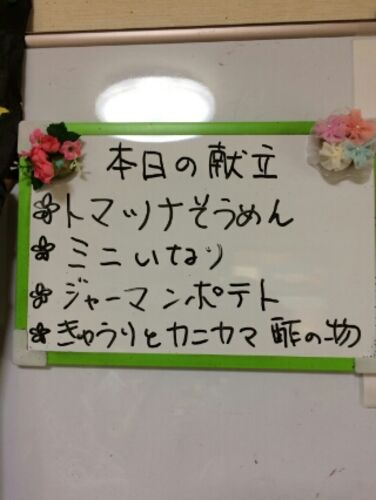 本日の献立
トマツナそうめん
ミニいなり
ジャーマンポテト
きゅうりとカニカマ酢の物